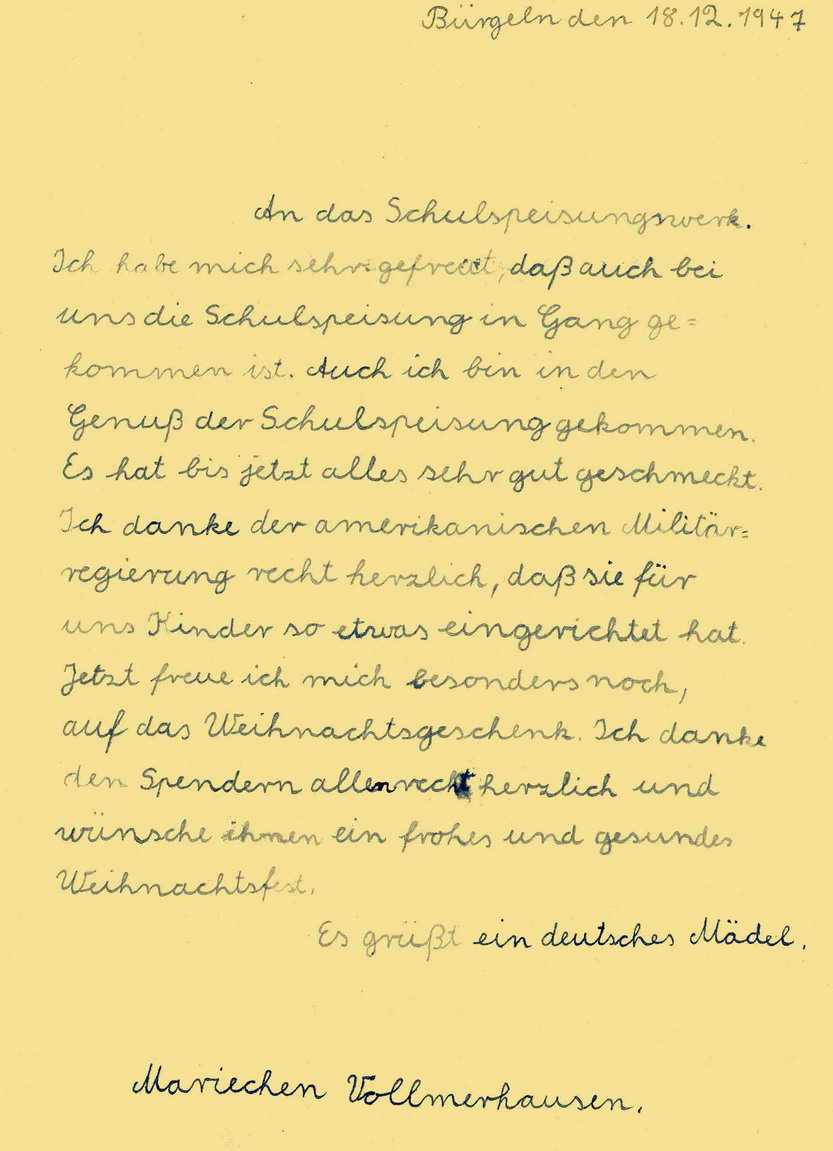 Bürgeln den 18.12.1947
An das Schulspeisungswerk.
Ich habe mich sehr gefreut, daß auch bei
uns die Schulspeisung in Gang ge=
kommen ist. Auch ich bin in den
Genuß der Schulspeisung gekommen.
Es hat bis jetzt alles sehr gut geschmeckt.
Ich danke der amerikanischen Militär=
regierung recht herzlich, daß sie für
uns Kinder so etwas eingerichtet hat.
Jetzt freue ich mich besonders noch,
auf das Weihnachtsgeschenk. Ich danke
den Spendern allen recht herzlich und
wünsche ihnen ein frohes und gesundes
Weihnachtsfest.
Es grüßt ein deutsches Mädel.
Mariechen Vollmerhausen.